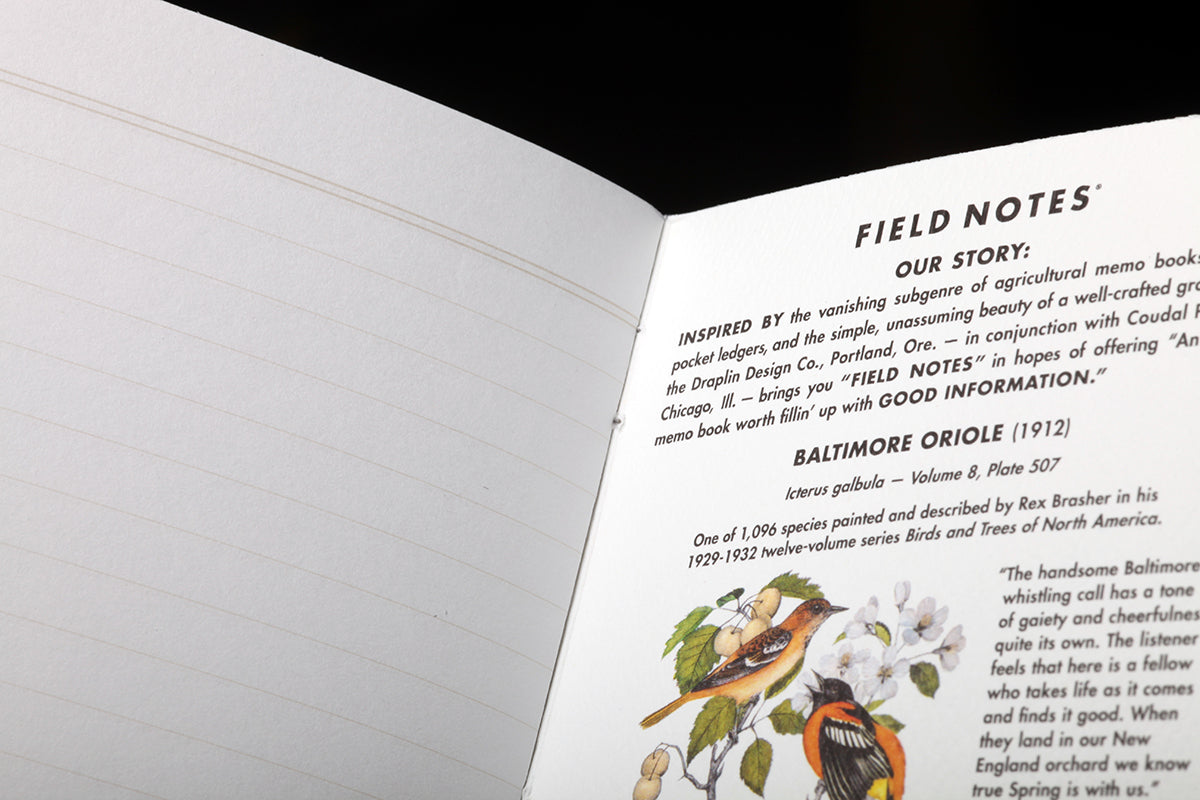 FIELD NOTES®
OUR STORY:
INSPIRED BY the vanishing subgenre of agricultural memo books
pocket ledgers, and the simple, unassuming beauty of a well-crafted
the Draplin Design Co., Portland, Ore. — in conjunction with Coudal
Chicago, Ill. — brings you "FIELD NOTES" in hopes of offering "An
memo book worth fillin' up with GOOD INFORMATION."
BALTIMORE ORIOLE (1912)
Icterus galbula — Volume 8, Plate 507
One of 1,096 species painted and described by Rex Brasher in his
1929-1932 twelve-volume series Birds and Trees of North America.
"The handsome Baltimore
whistling call has a tone
of gaiety and cheerfulnes
quite its own. The listener
feels that here is a fellow
who takes life as it comes
and finds it good. When
they land in our New
England orchard we know
true Spring is with us."